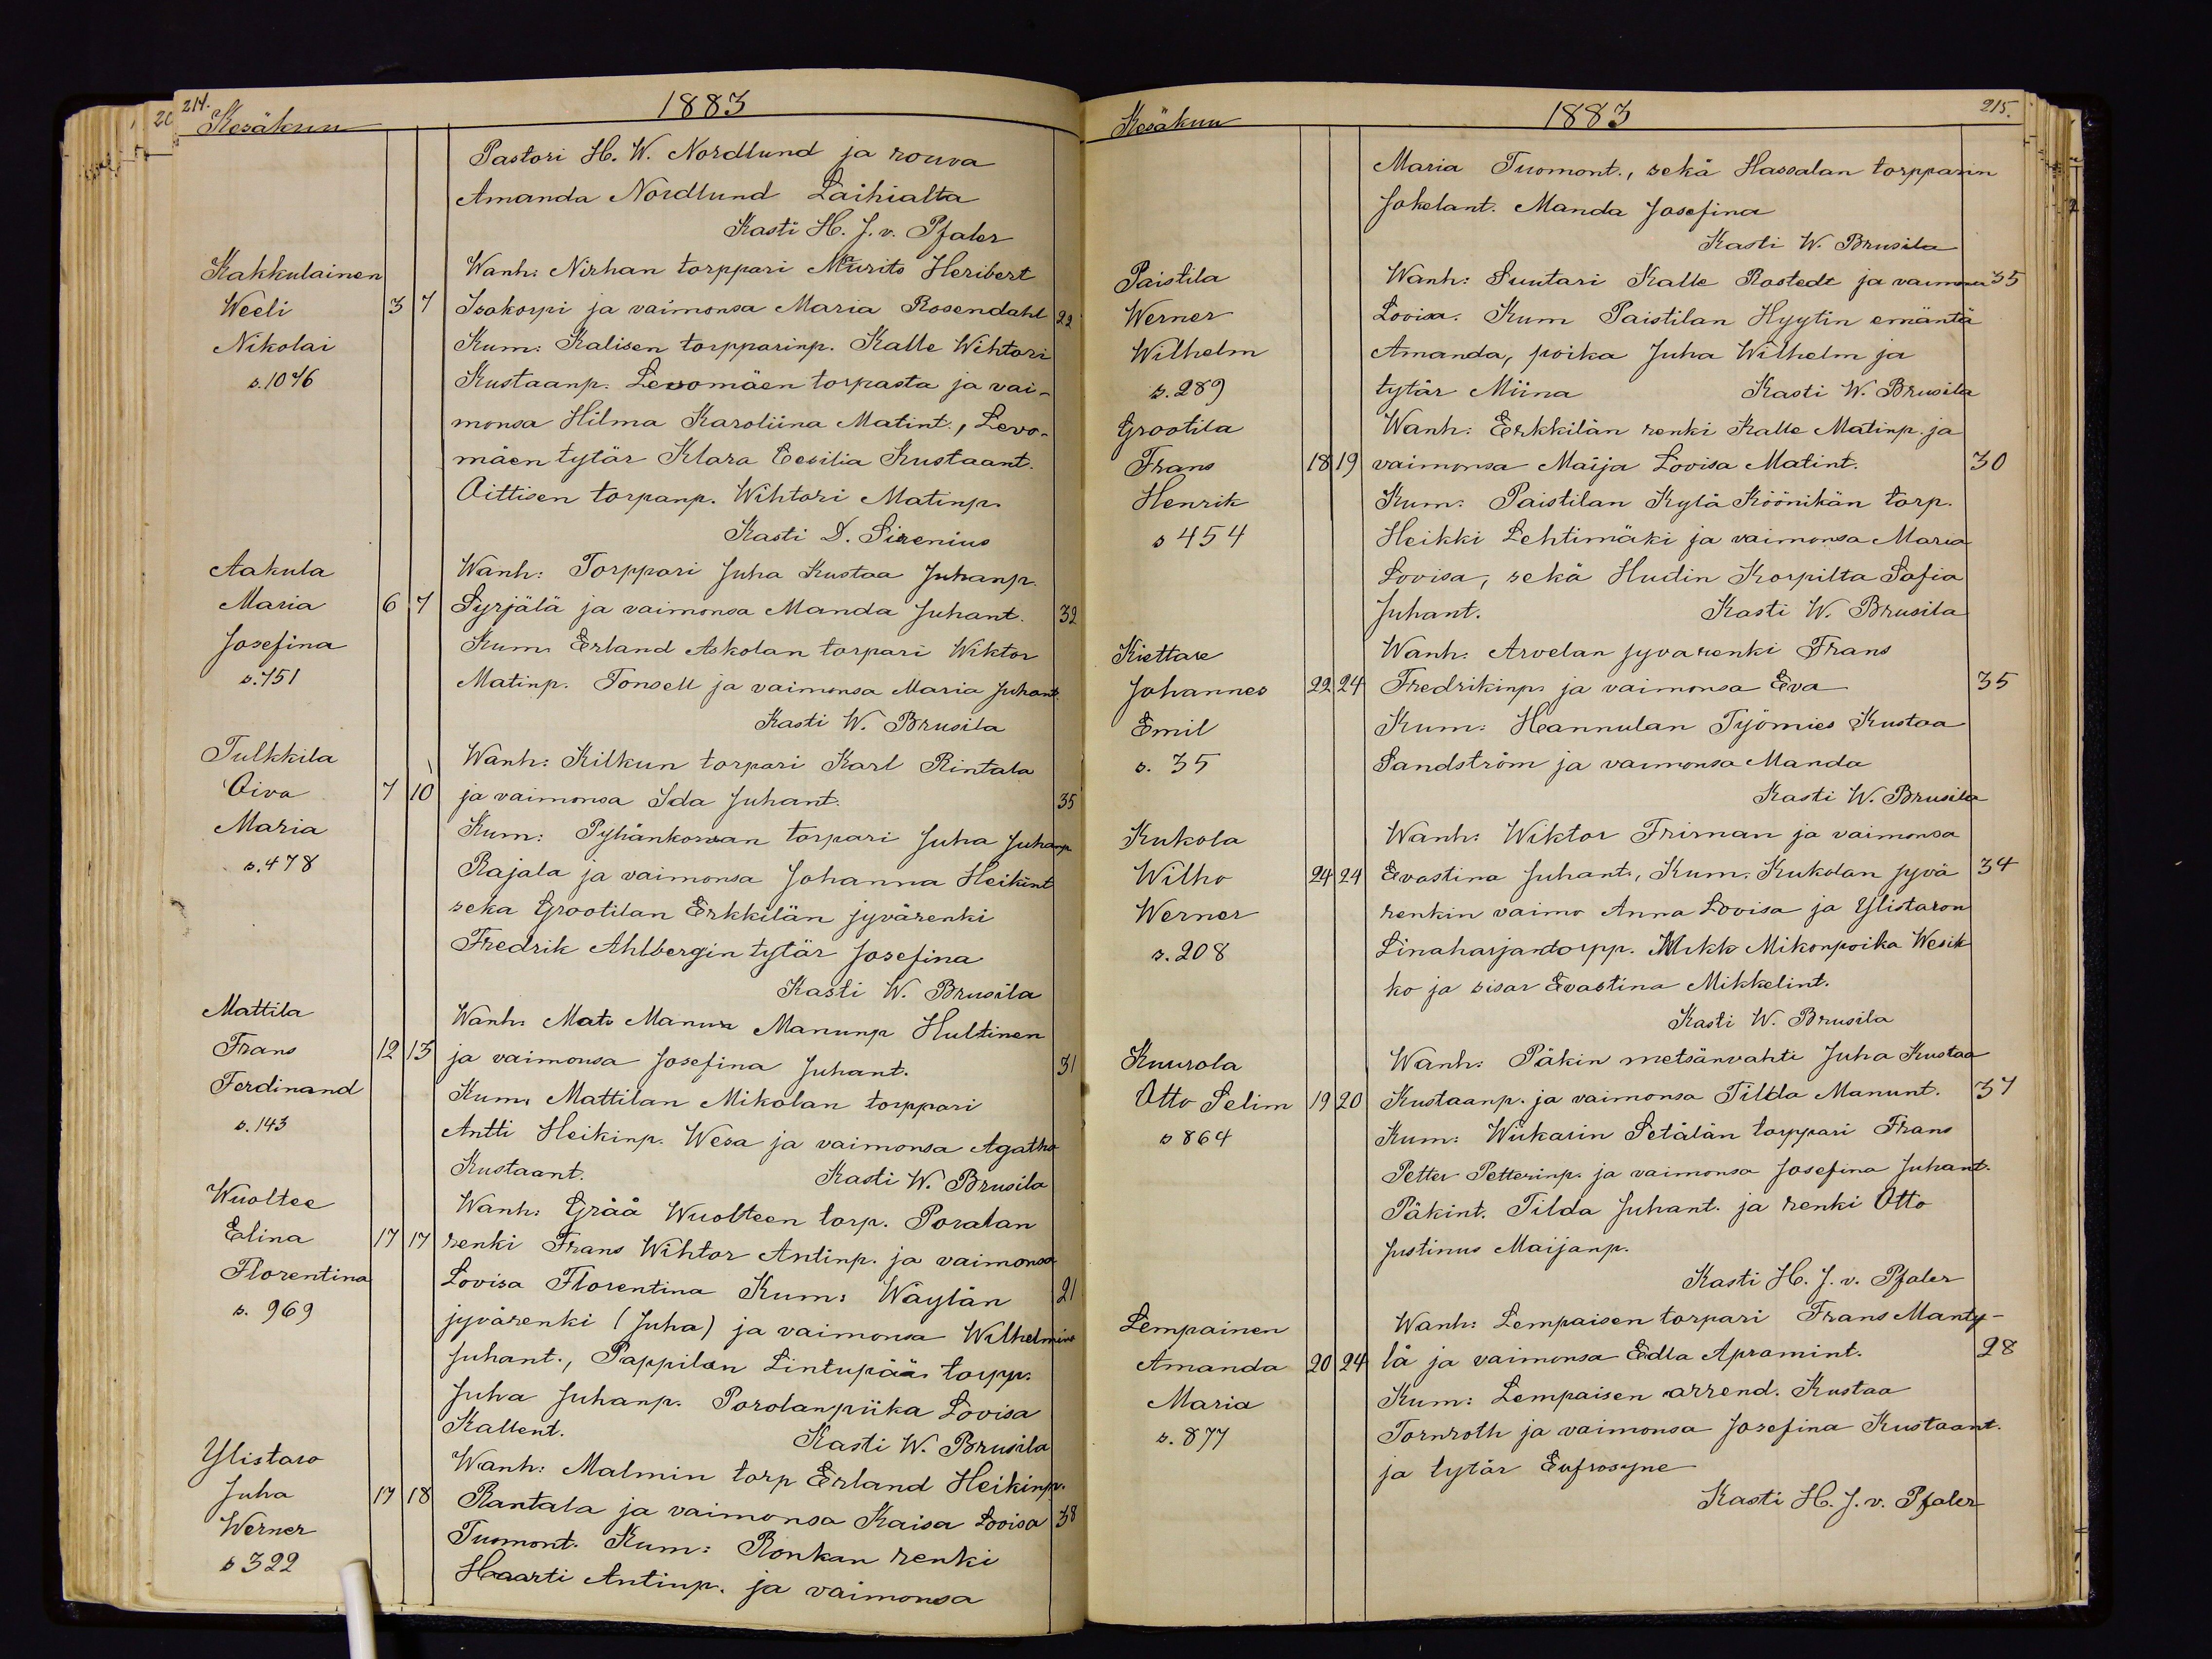 214.
Kesäkuu
1883
Pastori H. W. Nordlund ja rouva
Amanda Nordlund Laihialta
Kasti H. J. v. Pfaler
Kakkulainen
Wanh: Nirhan torppari Maurits Heribert
Weeli 3 7 Isokorpi ja vaimonsa Maria Rosendahl 22
Nikolai
Kum: Kalisen torpparinp. Kalle Wihtori
s. 1046
Kustaanp. Levomäen torpasta ja vai-
monsa Hilma Karoliina Matint., Levo-
mäen tytär Klara Cecilia Kustaant.
Oittisen torpanp. Wihtori Matinp.
Kasti D. Sirenius
Aakula
Wanh: Torppari Juha Kustaa Juhanp.
Maria 6 7 Syrjälä ja vaimonsa Manda Juhant. 32
Josefina
Kum: Erland Askolan torpari Wiktor
s. 751
Matinp. Tonsell ja vaimonsa Maria Juhant.
Kasti W. Brusila
Tulkkila
Wanh: Kilkun torpari Karl Rintala
Oiva 7 10 ja vaimonsa Ida Juhant. 35
Maria
Kum: Pyhänkorvan torpari Juha Juhanp
s. 478
Rajala ja vaimonsa Johanna Heikint
seka Grootilan Erkkilän jyvärenki
Fredrik Ahlbergin tytär Josefina
Kasti W. Brusila
Mattila
Wanh: Mats Manun Manunp Hultinen
Frans 12 13 ja vaimonsa Josefina Juhant. 31
Ferdinand
Kum: Mattilan Mikolan torppari
s. 143
Antti Heikinp. Wesa ja vaimonsa Agatha
Kustaant. Kasti W. Brusila
Wuoltee
Wanh: Gråå Wuolteen torp. Poralan
Elina 17 17 renki Frans Wihtor Antinp. ja vaimonsa
Florentina
Lovisa Florentina Kum: Wäylän 21
s. 969
jyvärenki (Juha) ja vaimonsa Wilhelmina
Juhant., Pappilan Lintupään torpp.
Juha Juhanp. Porolanpiika Lovisa
Kallent. Kasti W. Brusila
Ylistaro
Wanh: Malmin torp Erland Heikinp.
Juha 17 18 Rantala ja vaimonsa Kaisa Lovisa 38
Werner
Tuomont. Kum: Ronkan renki
s 322
Haarti Antinp. ja vaimonsa
Kesäkuu
1883
215.
Maria Tuomont., sekä Hassalan torpparin
Jokelant. Manda Josefina
Kasti W. Brusila
Paistila
Wanh: Suutari Kalle Rostedt ja vaimonsa 35
Werner
Lovisa. Kum Paistilan Hyytin emäntä
Wilhelm
Amanda, poika Juha Wilhelm ja
s. 289
tytär Miina Kasti W. Brusila
Grootila
Wanh: Erkkilän renki Kalle Matinp. ja
Frans 18 19 vaimonsa Maija Lovisa Matint. 30
Henrik
Kum: Paistilan Kylä Köönikän torp.
s 454
Heikki Lehtimäki ja vaimonsa Maria
Lovisa, sekä Hudin Korpilta Sofia
Juhant. Kasti W. Brusila
Kiettare
Wanh: Arvelan jyvarenki Frans
Johannes 22 24 Fredrikinp. ja vaimonsa Eva 35
Emil
Kum: Hannulan Työmies Kustaa
s. 35
Sandström ja vaimonsa Manda
Kasti W. Brusila
Kukola
Wanh: Wiktor Friman ja vaimonsa
Wilho 24 24 Evastina Juhant., Kum. Kukolan jyvä 34
Werner
renkin vaimo Anna Lovisa ja Ylistaron
s. 208
Linaharjantorpp. Mikk Mikonpoika Wesik
ko ja sisar Evastina Mikkelint.
Kasti W. Brusila
Kuurola
Wanh: Päkin metsänvahti Juha Kustaa
Otto Selim 19 20 Kustaanp. ja vaimonsa Tilda Manunt. 37
s 864
Kum: Wiikarin Setälän torppari Frans
Petter Petterinp. ja vaimonsa Josefina Juhant.
Päkint. Tilda Juhant. ja renki Otto
Justinus Maijanp.
Kasti H. J. v. Pfaler
Lempainen
Wanh: Lempaisen torpari Frans Manty-
Amanda 20 24 lä ja vaimonsa Edla Apramint. 28
Maria
Kum: Lempaisen arrend. Kustaa
s. 877
Tornroth ja vaimonsa Josefina Kustaant.
ja tytär Eufrosyne
Kasti H. J. v. Pfaler